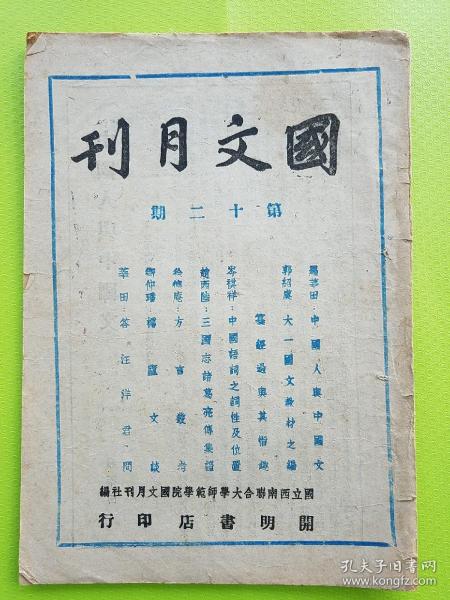 國文月刊
第十二期
羅莘田：中國人與中國文
郭紹虞：大一國文教材之編
纂經過與其旨趣
岑祺祥：中國語詞之詞性及位置
趙西陸：三國志諸葛亮傳集證
方言叢考
鄭仲璠：稱謂文談
莘田：答汪洋君問
國立西南聯合大學師範學院國文月刊社編
開明書店印行
孔夫子旧书网
www.kongfz.com